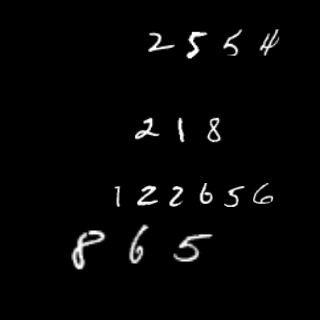 2 5 5 4
2 1 8
1 2 2 6 5 6
8 6 5